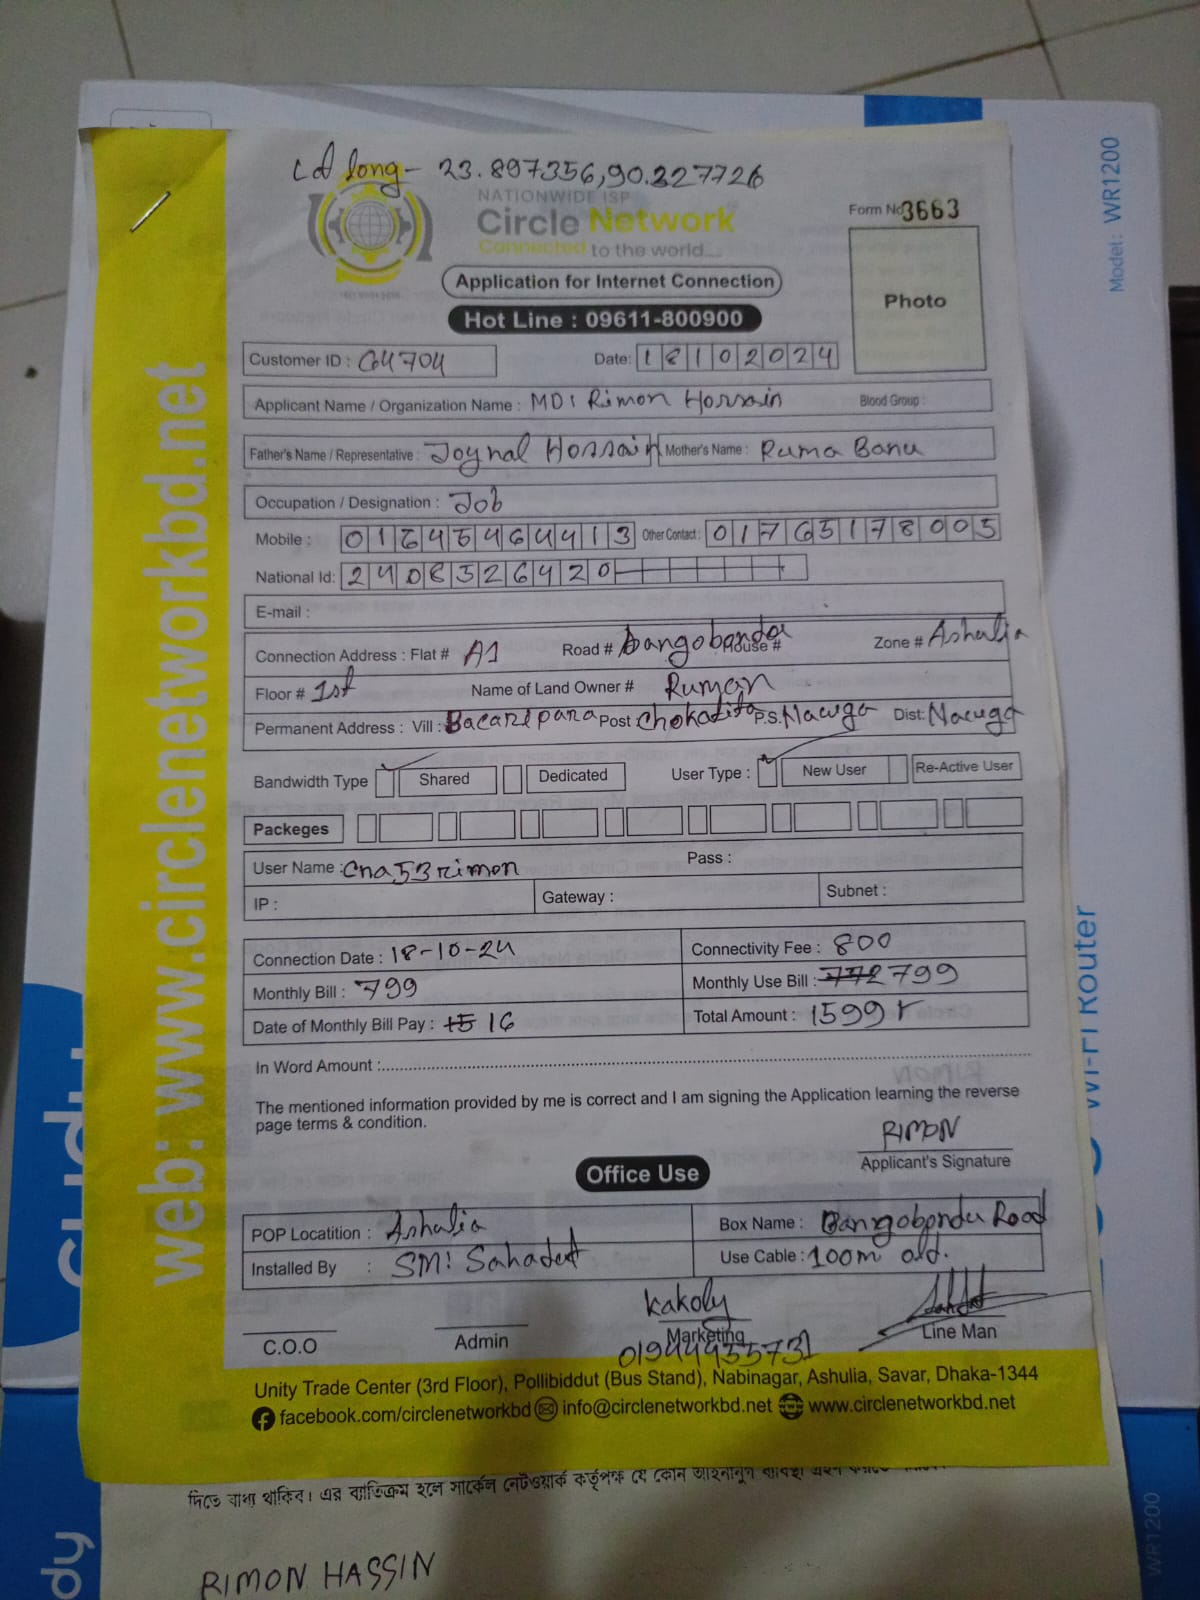 Ld long - 23.897356,90.327726
NATIONWIDE ISP
Circle Network
Connected to the world....
Form No 3663
Application for Internet Connection
Photo
Hot Line : 09611-800900
Customer ID : C4704
Date: 18102024
Applicant Name / Organization Name : MD: Rimon Hossain Blood Group :
Father's Name / Representative : Joynal Hossain Mother's Name : Ruma Banu
Occupation / Designation : Job
Mobile : 01645464413 Other Contact : 01765178005
National Id: 2408326420
E-mail :
Connection Address : Flat # A1 Road # Bangobandu House # Zone # Ashulia
Floor # 1st Name of Land Owner # Ruman
Permanent Address : Vill : Bacaripara Post Chokatita P.S. Naouga Dist: Naouga
Bandwidth Type Shared Dedicated User Type : New User Re-Active User
Packeges
User Name : Cna53rimon Pass :
IP : Gateway : Subnet :
Connection Date : 18-10-24 Connectivity Fee : 800
Monthly Bill : 799 Monthly Use Bill : 772 799
Date of Monthly Bill Pay : 15 16 Total Amount : 1599
In Word Amount :
The mentioned information provided by me is correct and I am signing the Application learning the reverse
page terms & condition.
RIMON
Applicant's Signature
Office Use
POP Locatition : Ashulia Box Name : Bangobondu Road
Installed By : SM: Sahadat Use Cable : 100m old.
kakoly
C.O.O Admin Marketing Line Man
01944955731
Unity Trade Center (3rd Floor), Pollibiddut (Bus Stand), Nabinagar, Ashulia, Savar, Dhaka-1344
facebook.com/circlenetworkbd info@circlenetworkbd.net www.circlenetworkbd.net
web: www.circlenetworkbd.net
দিতে বাধ্য থাকিব। এর ব্যতিক্রম হলে সার্কেল নেটওয়ার্ক কর্তৃপক্ষ যে কোন আইনানুগ ব্যবস্থা
RIMON HASSIN
Model: WR1200
Wi-Fi Router
WR1200
dy